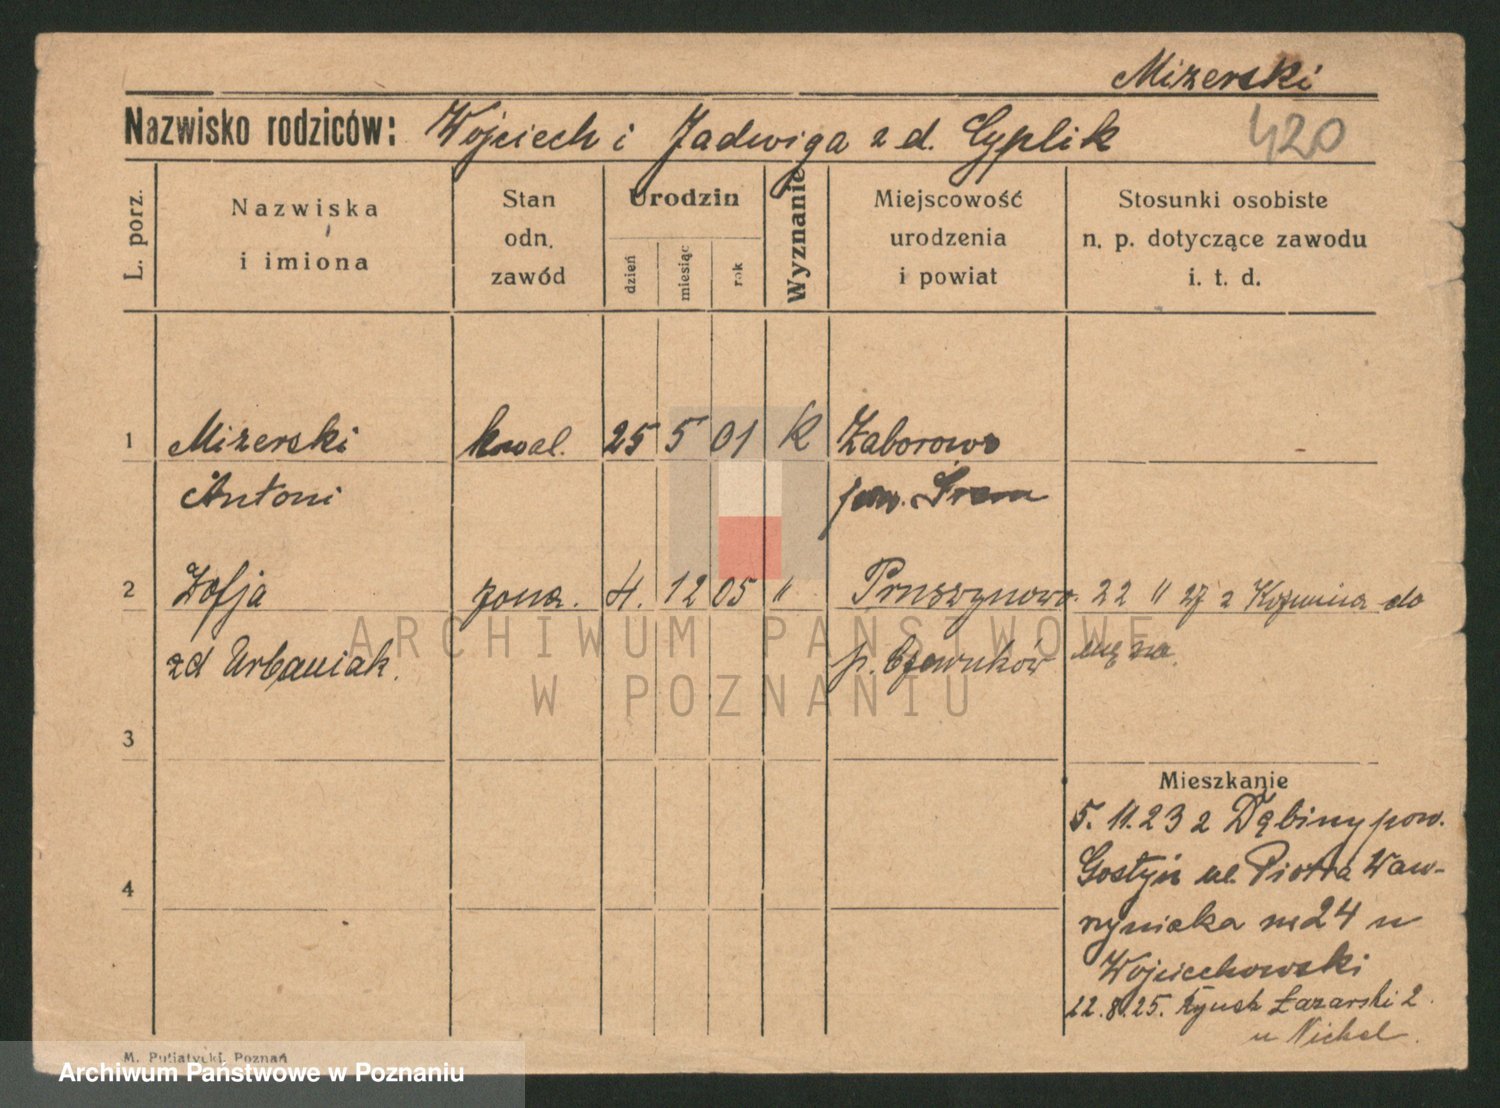 Mizerski
Nazwisko rodziców: Wojciech i Jadwiga z d. Cyplik
420
L. porz.
Nazwiska
i imiona
Stan
odn.
zawód
Urodzin
dzień
miesiąc
rok
Wyznanie
Miejscowość
urodzenia
i powiat
Stosunki osobiste
n. p. dotyczące zawodu
i. t. d.
1 Mizerski kowal. 25 5 01 K Zaborowo
Antoni pow. Śrem
2 Zofja żona. 4. 12 05 " Pruszynowo. 22 11 27 z Koźmina do
zd Urbaniak. męża.
3
4
Mieszkanie
5. 11. 23 z Dąbiny pow.
Gostyń ul. Piotra Waw-
rzyniaka 24 u
Wojciechowski
22. 8. 25. Rynek Łazarski 2.
u Nickel.
M. Putiatycki, Poznań
ARCHIWUM PAŃSTWOWE
W POZNANIU
Archiwum Państwowe w Poznaniu